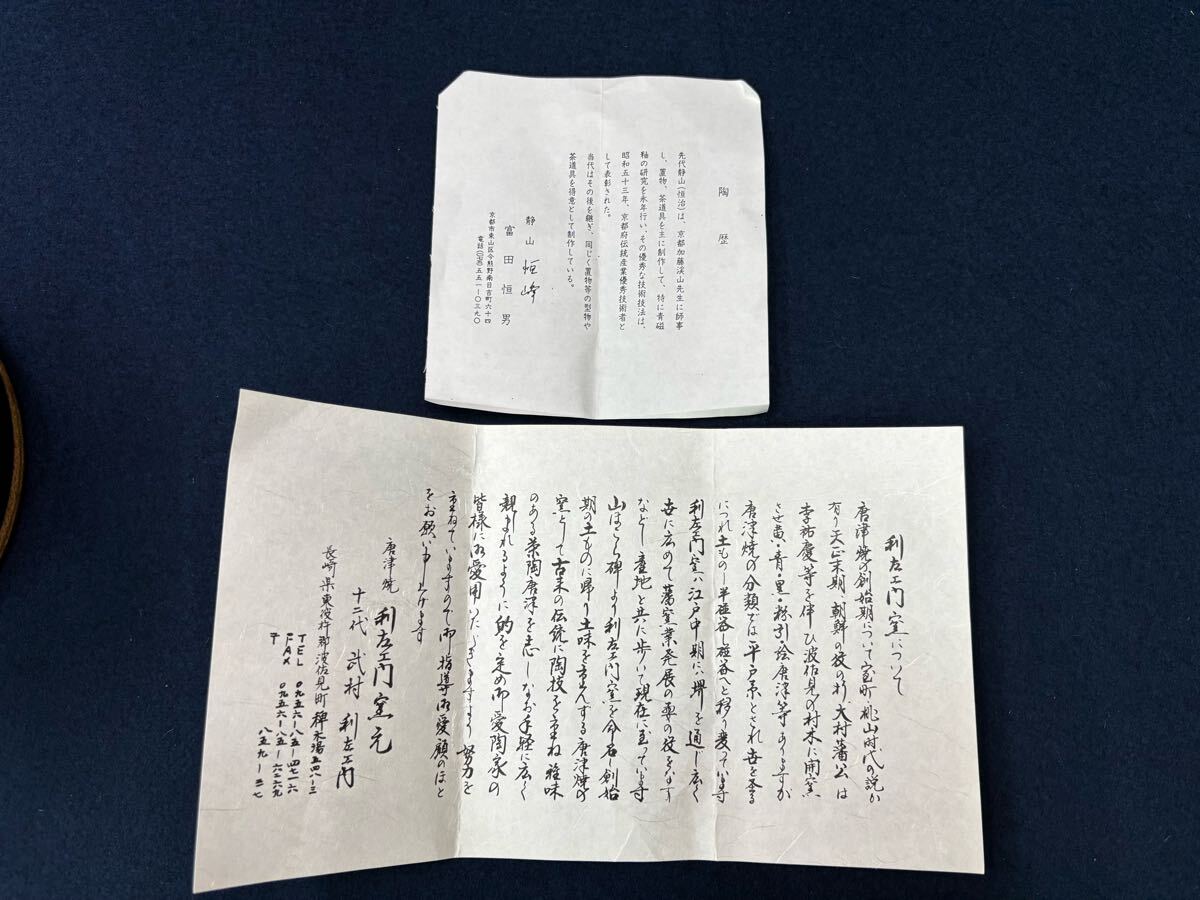 陶歴
先代静山(恒治)は、京都加藤渓山先生に師事
し、置物、茶道具を主に制作して、特に青磁
釉の研究を永年行い、その優秀な技術技法は、
昭和五十三年、京都府伝統産業優秀技術者と
して表彰された。
当代はその後を継ぎ、同じく置物等の型物や
茶道具を得意として制作している。
静山 恒峰
富田恒男
京都市東山区今熊野南日吉町六十四
電話(〇七五)五五一ー〇三九〇
利左ェ門窯について
唐津焼の創始期について室町、桃山時代の説が
有り天正末期、朝鮮の役の折、大村藩公は
李祐慶等を伴ひ波佐見の村木に開窯
させ黄・青・黒・粉引・絵唐津等ありますが
唐津焼の分類では平戸系とされ世を経る
につれ土もの半磁器し磁器へと移り変っています
利左ェ門窯ハ江戸中期にハ堺を通し広く
世に広めて藩窯業発展の要の役をなす
など産地と共に歩いて現在に至っています
山ほこら碑より利左ェ門窯を命名し創始
期の土ものに帰り土味を重んずる唐津焼の
窯として古来の伝統に陶技を重ね雅味
のある茶陶唐津を志しなお手軽に広く
親しまれるように的を定め御愛陶家の
皆様に御愛用いただきますよう努力を
重ねていますので御指導御愛顧のほど
をお願い申し上げます
唐津焼 利左ェ門窯元
十二代 武村利左ェ門
長崎県東彼杵郡波佐見町稗木場五四八ー三
TEL 〇九五六ー八五ー四七一六
FAX 〇九五六ー八五ー六二六九
〒 八五九ー三七